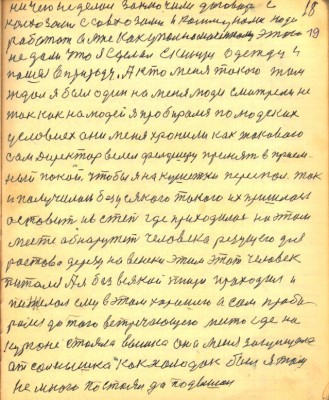 18
ничего не дали заключили договор с
19
колхозами совхозами в
работать я же как уполномоченному этого
не дали что я сделал скинул одежду и
пошел в природу. А кто меня такого там
ждал я был один на меня люди смотрели не
так как на людей я пробирался по людских
условиях они меня хронили как такового
сам директор велел принять в прием-
ный покой, чтобы я на кушетки переспал. так
и получилось безусякого такого их пришлось
оставить и в степ где приходилось на этом
месте обнаружет человека
на веники этим этот человек
питался А я без всякой пищи приходил и
пожелал ему в этом хорошего а сам проби-
рался до того встречающего место где на
кургоне стояла вышка она меня защищала
от солнышка как холодок был я там
не много постоял да подышал